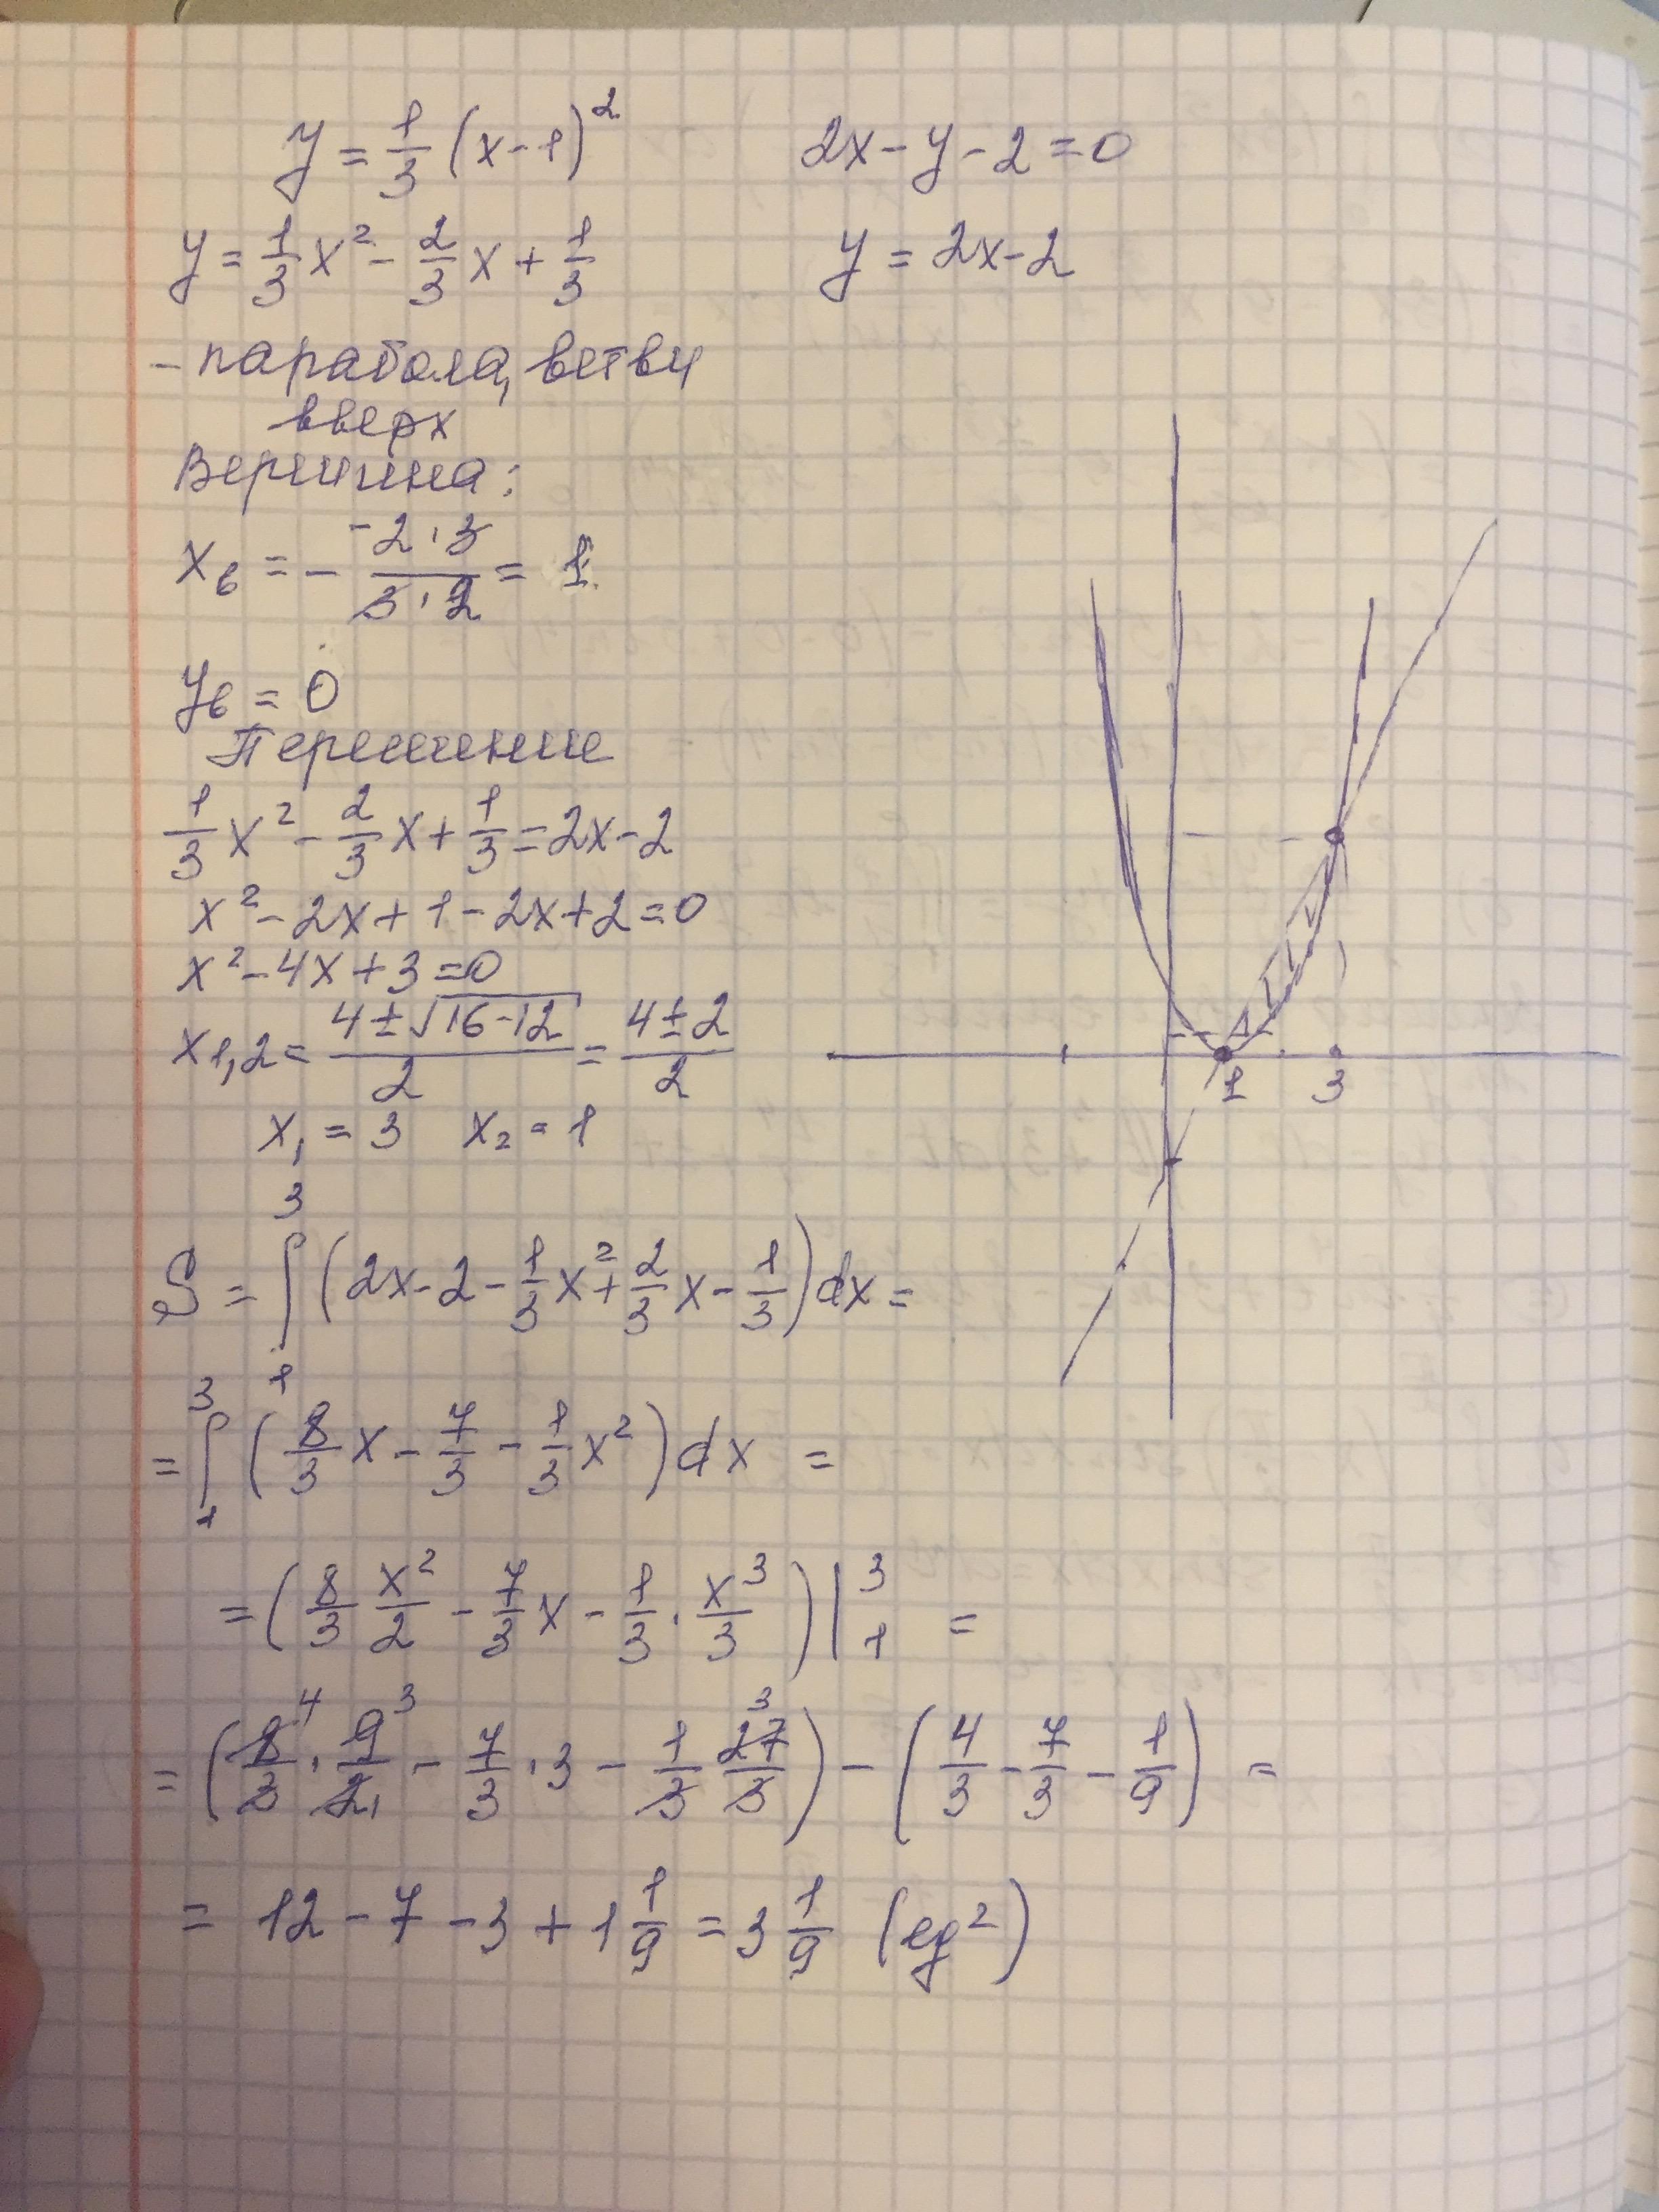 y = 1/3 (x-1)² 2x - y - 2 = 0
y = 1/3 x² - 2/3 x + 1/3 y = 2x - 2
- парабола, ветви
вверх
Вершина:
xв = - (-2·3)/(3·2) = 1
yв = 0
Пересечение
1/3 x² - 2/3 x + 1/3 = 2x - 2
x² - 2x + 1 - 2x + 2 = 0
x² - 4x + 3 = 0
x1,2 = (4 ± √(16-12))/2 = (4 ± 2)/2
1 3
x₁ = 3 x₂ = 1
S = ∫₁³ (2x - 2 - 1/3 x² + 2/3 x - 1/3) dx =
= ∫₁³ (8/3 x - 7/3 - 1/3 x²) dx =
= (8/3 x²/2 - 7/3 x - 1/3 · x³/3) |₁³ =
= (8⁴/3 · 9³/2₁ - 7/3 · 3 - 1/3 27³/3) - (4/3 - 7/3 - 1/9) =
= 12 - 7 - 3 + 1 1/9 = 3 1/9 (ед²)